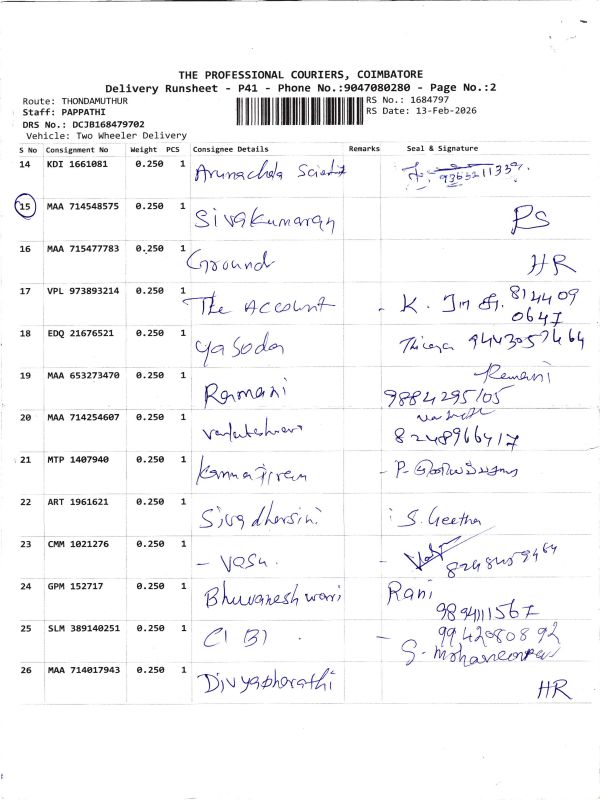 THE PROFESSIONAL COURIERS, COIMBATORE
Delivery Runsheet - P41 - Phone No.:9047080280 - Page No.:2
Route: THONDAMUTHUR
RS No.: 1684797
Staff: PAPPATHI
RS Date: 13-Feb-2026
DRS No.: DCJB168479702
Vehicle: Two Wheeler Delivery
S No Consignment No Weight PCS Consignee Details Remarks Seal & Signature
14 KDI 1661081 0.250 1 Arunachala
15 MAA 714548575 0.250 1 Sivakumaran RS
16 MAA 715477783 0.250 1 Ground HR
17 VPL 973893214 0.250 1 The Account - K. 814409
0647
18 EDQ 21676521 0.250 1 Yasoda
19 MAA 653273470 0.250 1 Ramani Remani
9884295105
20 MAA 714254607 0.250 1
8248966417
21 MTP 1407940 0.250 1 - P.
22 ART 1961621 0.250 1 Sivadharsini S. Geetha
23 CMM 1021276 0.250 1 - Vasu.
24 GPM 152717 0.250 1 Bhuvaneshwari Rani
9894111567
25 SLM 389140251 0.250 1 CIBI - 9942080892
S.
26 MAA 714017943 0.250 1 Divyabharathi HR